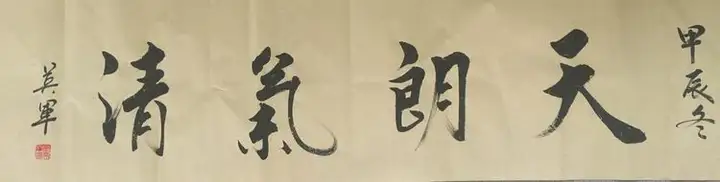 甲辰冬
天朗氣清
英軍